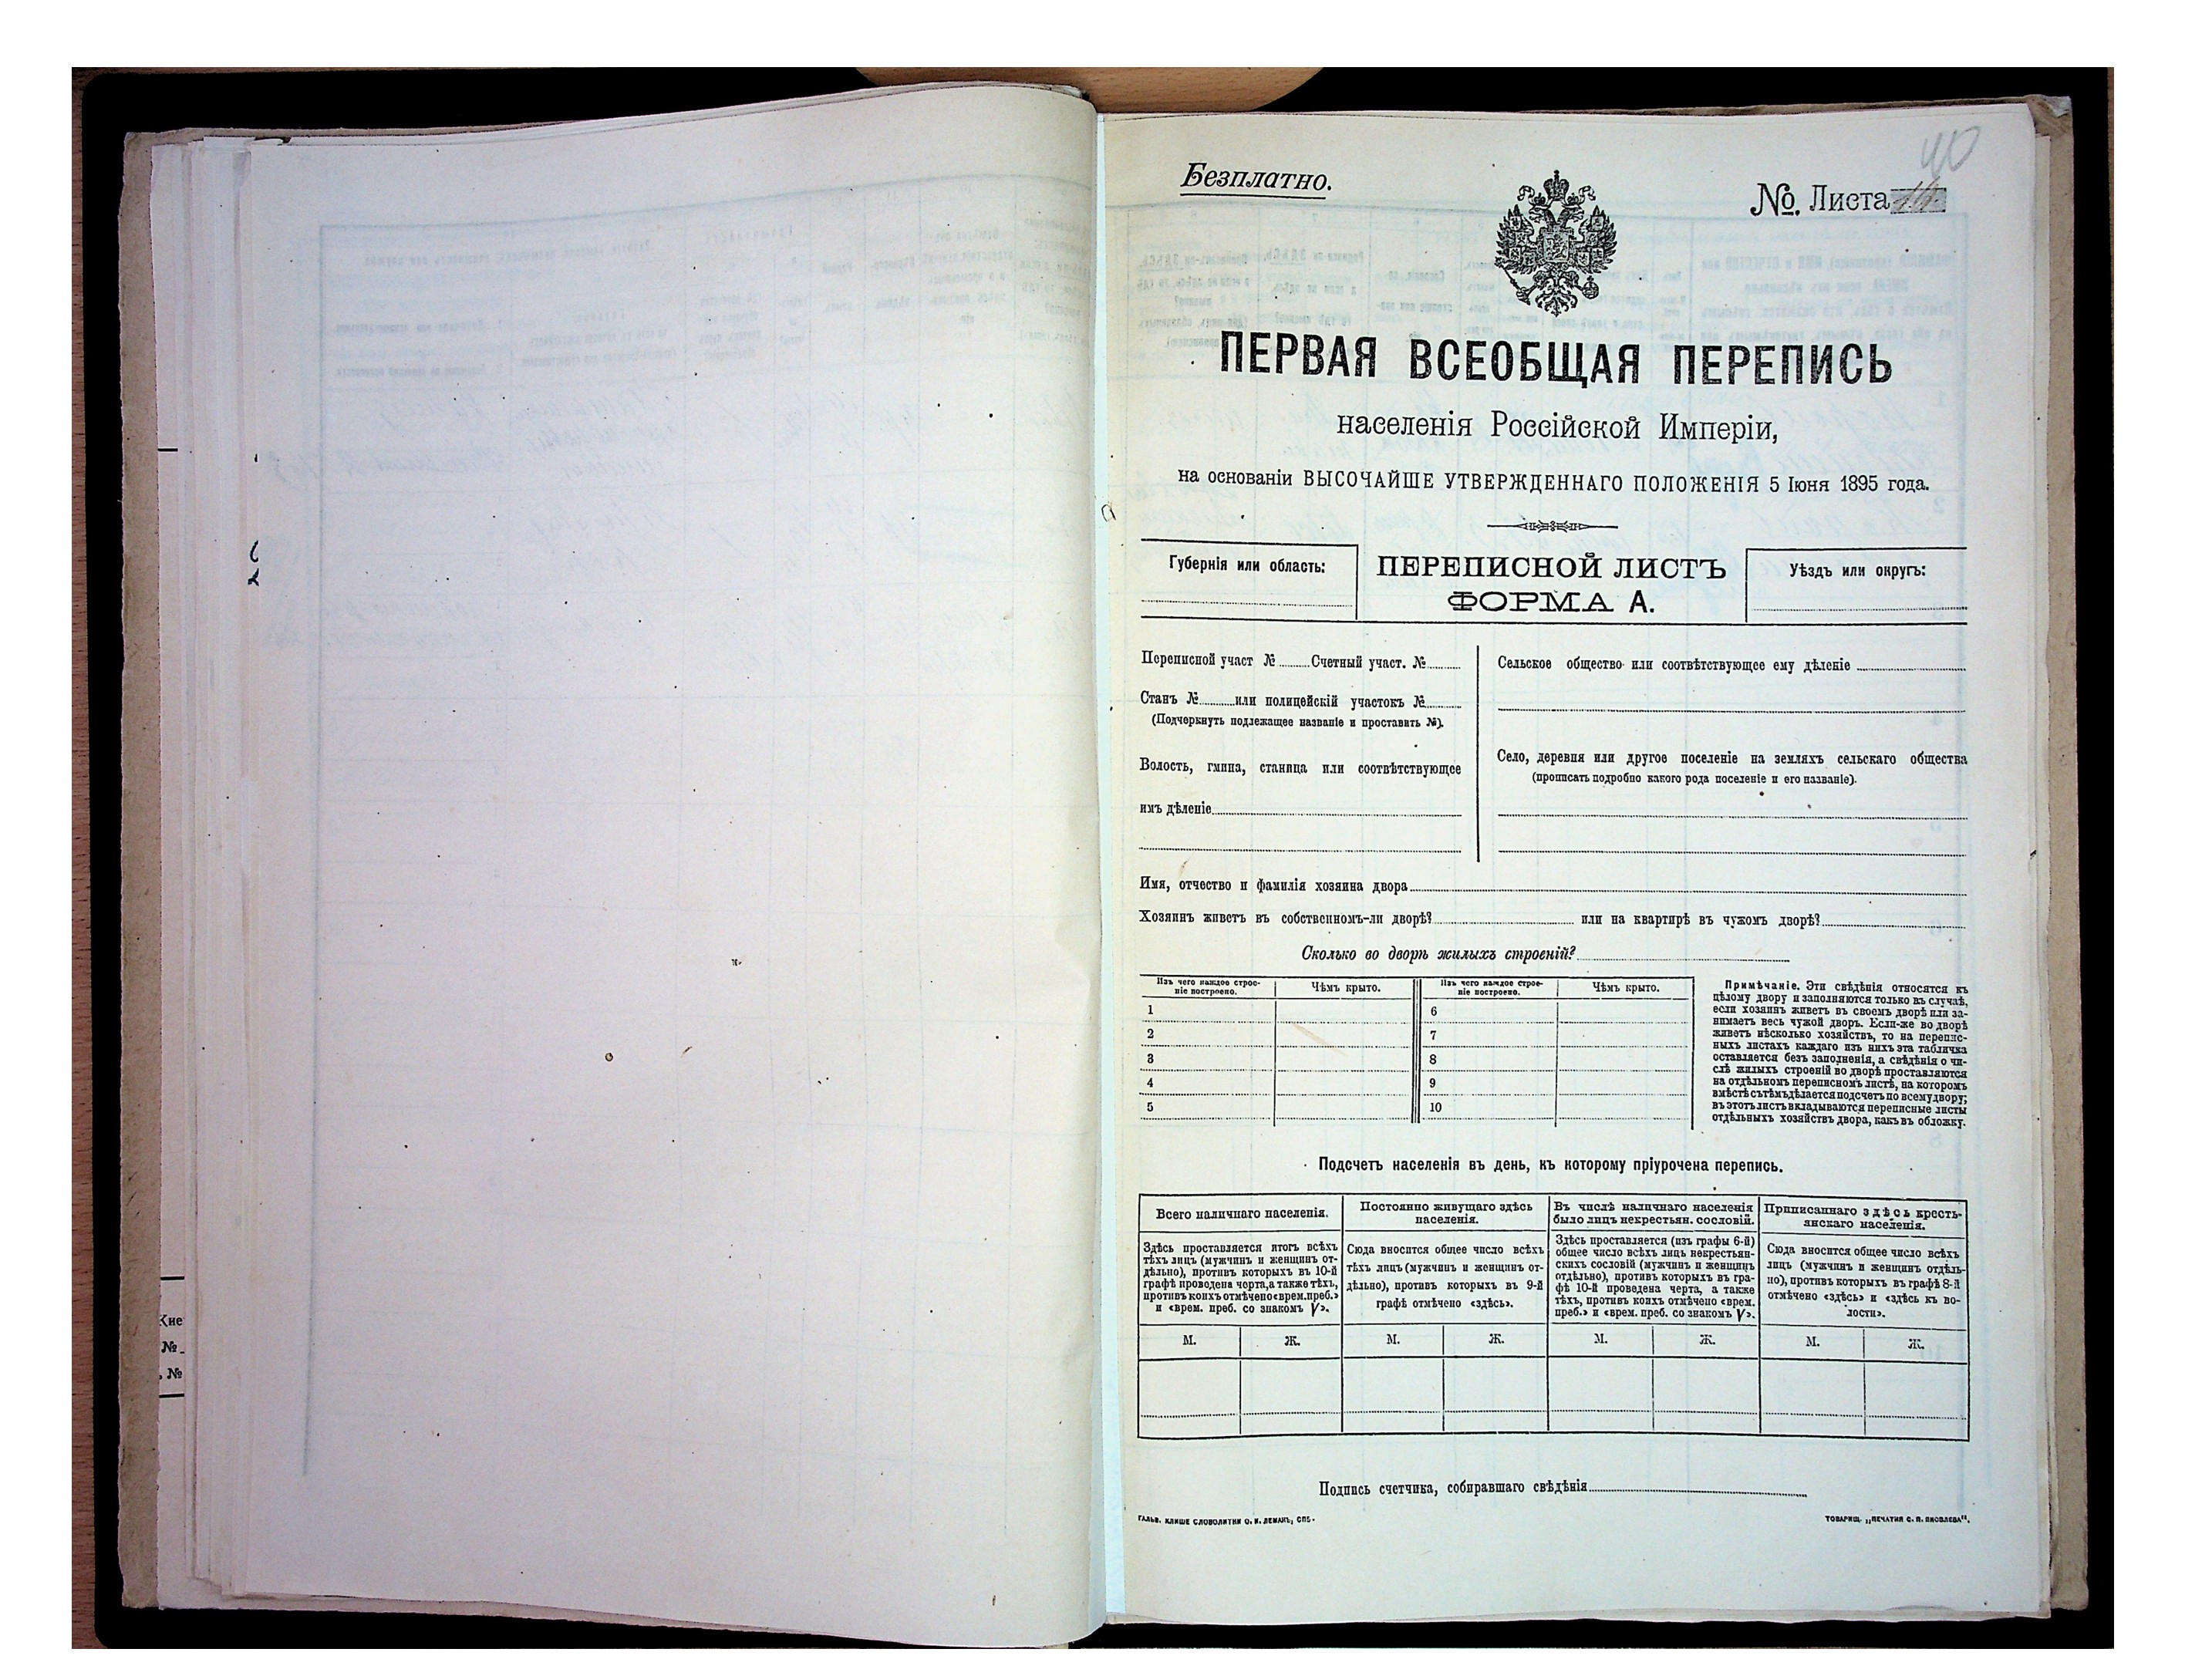 Кие
№
№
40
Безплатно.
№. Листа
ПЕРВАЯ ВСЕОБЩАЯ ПЕРЕПИСЬ
населенія Россійской Имперіи,
на основаніи ВЫСОЧАЙШЕ УТВЕРЖДЕННАГО ПОЛОЖЕНІЯ 5 Іюня 1895 года.
Губернія или область:
ПЕРЕПИСНОЙ ЛИСТЪ
ФОРМА А.
Уѣздъ или округъ:
Переписной участ № Счетный участ. №
Станъ № или полицейскій участокъ №
(Подчеркнуть подлежащее названіе и проставить №).
Волость, гмина, станица или соотвѣтствующее
имъ дѣленіе
Сельское общество или соотвѣтствующее ему дѣленіе
Село, деревня или другое поселеніе на земляхъ сельскаго общества
(прописать подробно какого рода поселеніе и его названіе).
Имя, отчество и фамилія хозяина двора
Хозяинъ живетъ въ собственномъ-ли дворѣ? или на квартирѣ въ чужомъ дворѣ?
Сколько во дворѣ жилыхъ строеній?
Изъ чего каждое строе-
ніе построено.
Чѣмъ крыто.
Изъ чего каждое строе-
ніе построено.
Чѣмъ крыто.
1
2
3
4
5
6
7
8
9
10
Примѣчаніе. Эти свѣдѣнія относятся къ
цѣлому двору и заполняются только въ случаѣ,
если хозяинъ живетъ въ своемъ дворѣ или за-
нимаетъ весь чужой дворъ. Если-же во дворѣ
живетъ нѣсколько хозяйствъ, то на перепис-
ныхъ листахъ каждаго изъ нихъ эта табличка
оставляется безъ заполненія, а свѣдѣнія о чи-
слѣ жилыхъ строеній во дворѣ проставляются
на отдѣльномъ переписномъ листѣ, на которомъ
вмѣстѣ съ тѣмъ дѣлается подсчетъ по всему двору;
въ этотъ листъ вкладываются переписные листы
отдѣльныхъ хозяйствъ двора, какъ въ обложку.
Подсчетъ населенія въ день, къ которому пріурочена перепись.
Всего наличнаго населенія.
Здѣсь проставляется итогъ всѣхъ
тѣхъ лицъ (мужчинъ и женщинъ от-
дѣльно), противъ которыхъ въ 10-й
графѣ проведена черта, а также тѣхъ,
противъ коихъ отмѣчено «врем. преб.»
и «врем. преб. со знакомъ V».
М. Ж.
Постоянно живущаго здѣсь
населенія.
Сюда вносится общее число всѣхъ
тѣхъ лицъ (мужчинъ и женщинъ от-
дѣльно), противъ которыхъ въ 9-й
графѣ отмѣчено «здѣсь».
М. Ж.
Въ числѣ наличнаго населенія
было лицъ некрестьян. сословій.
Здѣсь проставляется (изъ графы 6-й)
общее число всѣхъ лицъ некрестьян-
скихъ сословій (мужчинъ и женщинъ
отдѣльно), противъ которыхъ въ гра-
фѣ 10-й проведена черта, а также
тѣхъ, противъ коихъ отмѣчено «врем.
преб.» и «врем. преб. со знакомъ V».
М. Ж.
Приписаннаго здѣсь кресть-
янскаго населенія.
Сюда вносится общее число всѣхъ
лицъ (мужчинъ и женщинъ отдѣль-
но), противъ которыхъ въ графѣ 8-й
отмѣчено «здѣсь» и «здѣсь къ во-
лости».
М. Ж.
Подпись счетчика, собиравшаго свѣдѣнія
ГАЛЬВ. КЛИШЕ СЛОВОЛИТНИ О. И. ЛЕМАНЪ, СПБ.
ТОВАРИЩ. „ПЕЧАТНЯ С. П. ЯКОВЛЕВА“.